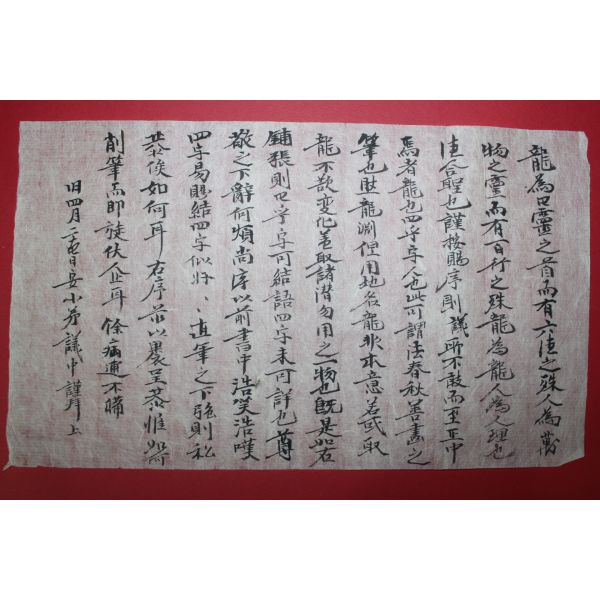 龍為四靈之首而有六德之殊人為萬
物之靈而有百行之殊龍為龍人為人理也
法合聖也謹按賜序則議所不敢而至正中
馬者龍也四乎字人也此可謂法春秋善畫之
筆也龍淵但用地名龍非本意若或取
龍不敢變化蓋取諸潛勿用之一物也既是如右
鋪張則四等字可結語四字未可詳也尊
敬之下辭何煩尚序以前書中浩癸浩嘆
四字易賜結四字似好、直筆之下強則私
恭俟如何耳右序茲以裹呈恭惟
削筆而即旋伏企耳 餘病逋不備
旧四月二五日安小弟議中謹拜上